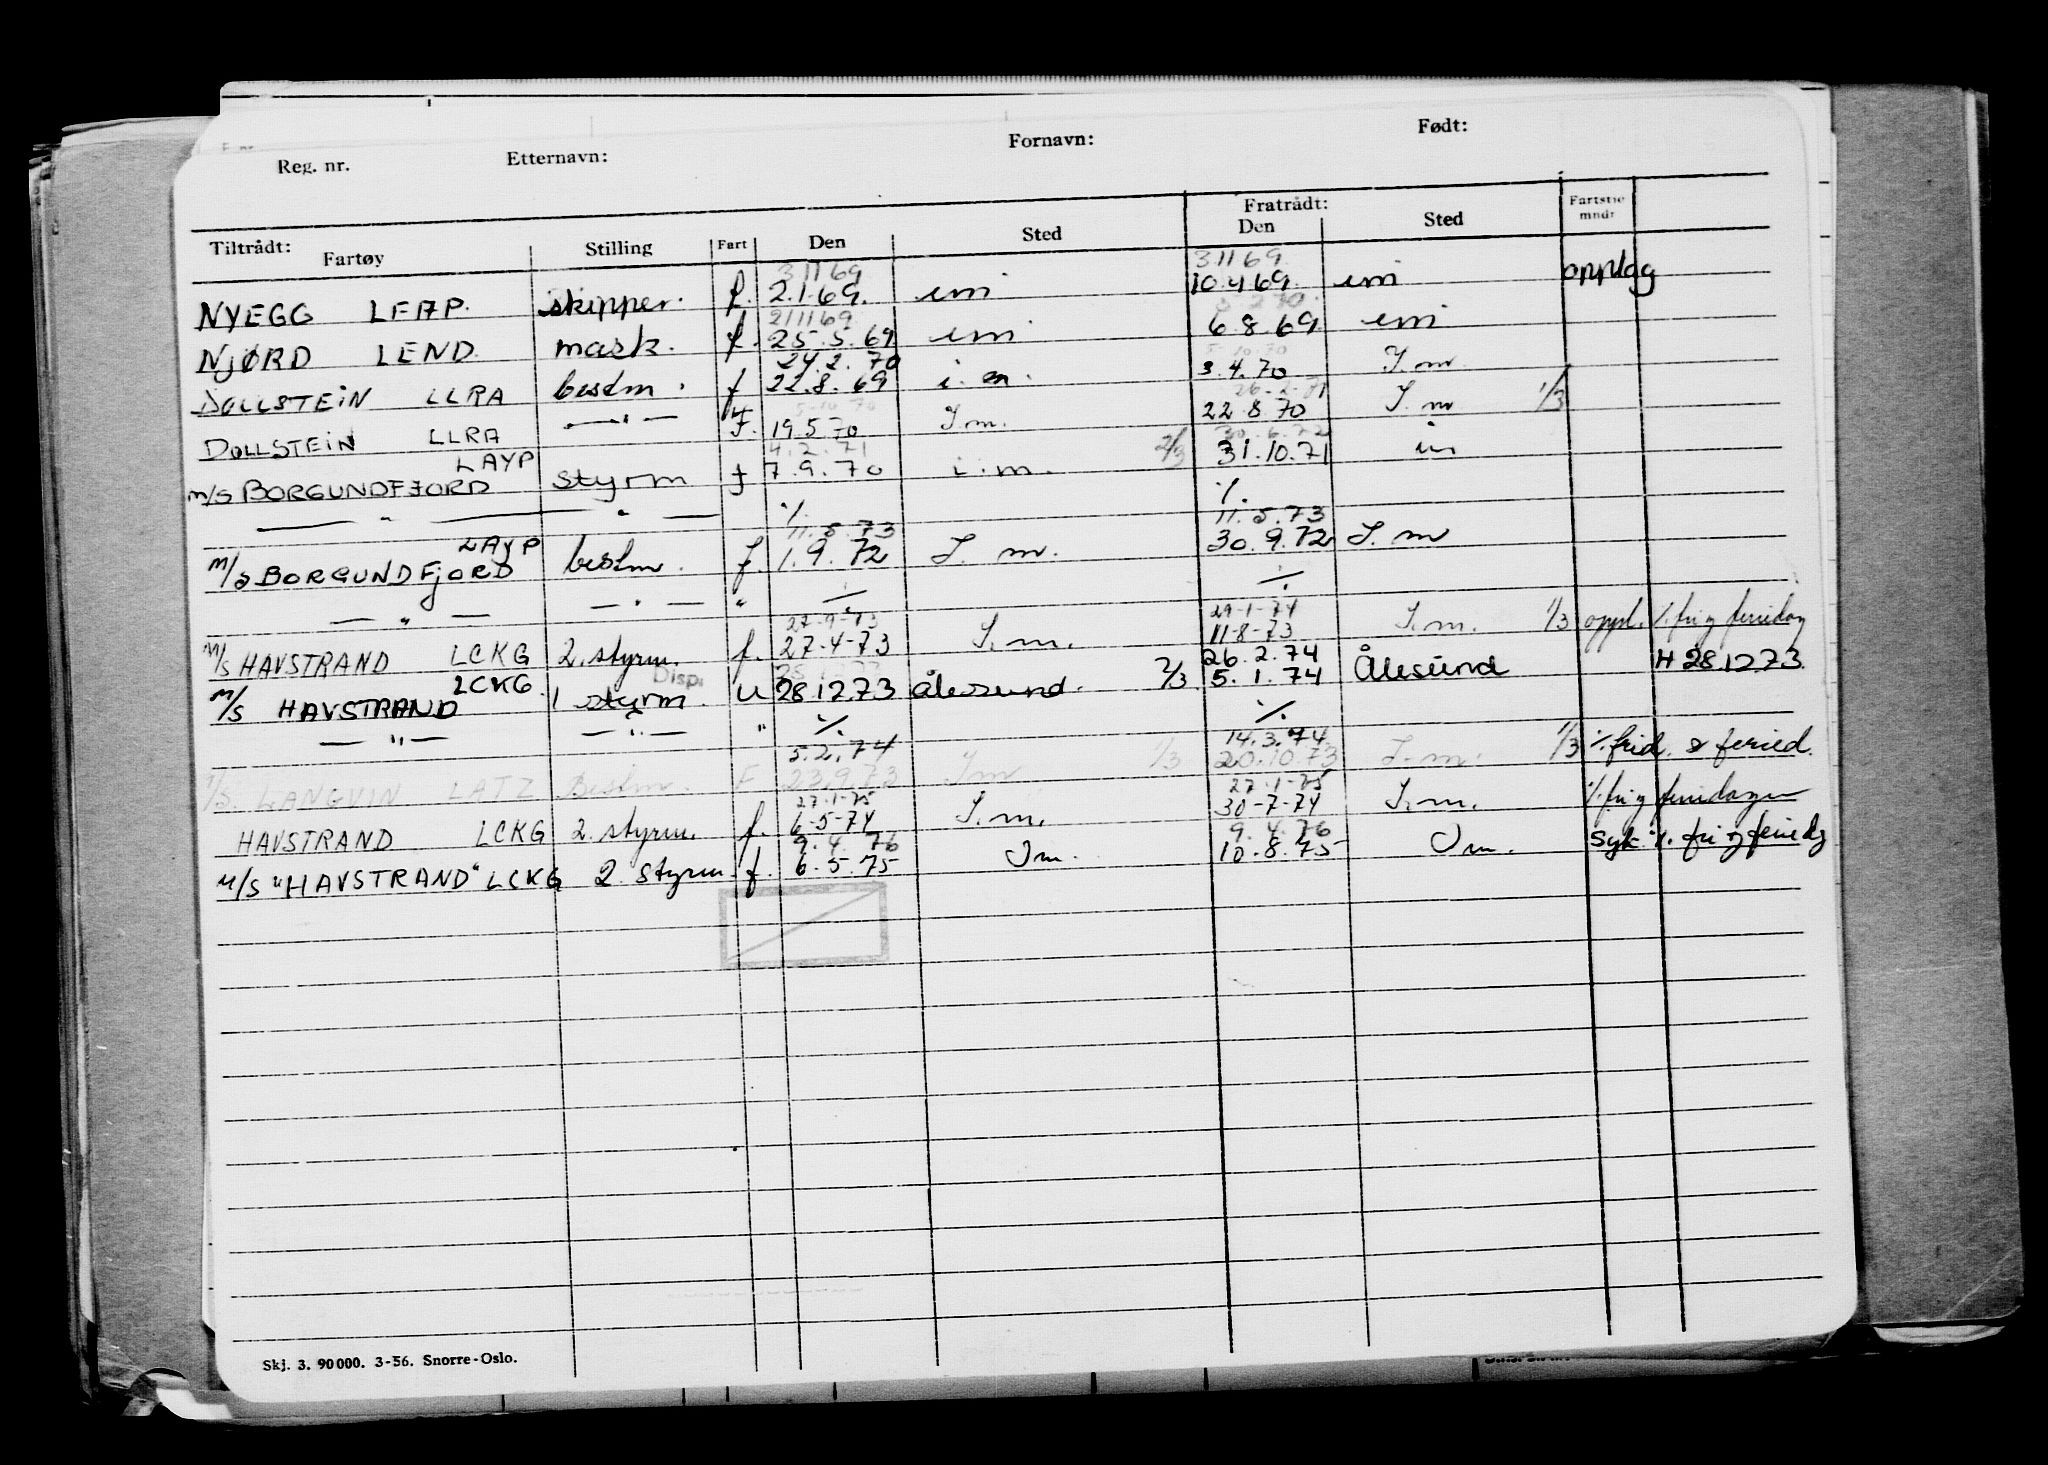 Reg. nr. Etternavn: Fornavn: Født:
Tiltrådt: Fratrådt:
Fartøy Stilling Fart Den Sted Den Sted Fartstid mndr
31169 31169
NYEGG LEAP. skipper. f. 2.1.69. im 10.4.69. im opplag
211169
NJØRD LEND. mask. f. 25.5.69 im 6.8.69 im
24.2.70 5.10.70
DOLLSTEIN LLRA bestm. f 22.8.69 i.m. 3.4.70 I.m.
5.10.70 26-2-71
DOLLSTEIN LLRA —"— F. 19.5.70 I.m. 22.8.70 I.m 1/3
LAYP 4.2.71 30.6.72
M/S BORGUNDFJORD styrm f 7.9.70 i.m. 2/3 31.10.71 im
— " — " — % %
LAYP 11.5.73 11.5.73
M/S BORGUNDFJORD bestm. f. 1.9.72 I.m. 30.9.72 I.m
— " — — " — " % %
27-9-73 29-1-74
M/S HAVSTRAND LCKG 2. styrm. f. 27-4-73 I.m. 11-8-73 I.m. 1/3 oppl. % fri og feriedag
LCKG. Disp. 26.2.74
M/S HAVSTRAND 1 styrm. U 28.12.73 Ålesund. 2/3 5.1.74 Ålesund H 281273
— " — — " — " % %
5.2.74 14.3.74
M/S. LANGVIN LATZ Bestm. F 23.9.73 Im 1/3 20.10.73 I.m. 1/3 % frid. & feried.
27-1-75 27-1-75
HAVSTRAND LCKG 2. styrm. f. 6-5-74 I.m. 30-7-74 I.m. % fri og feriedager
9.4.76 9.4.76
M/S "HAVSTRAND" LCKG 2. styrm f. 6.5.75 Im. 10.8.75 Im. Syk % fri og feriedg
Skj. 3. 90 000. 3-56. Snorre-Oslo.